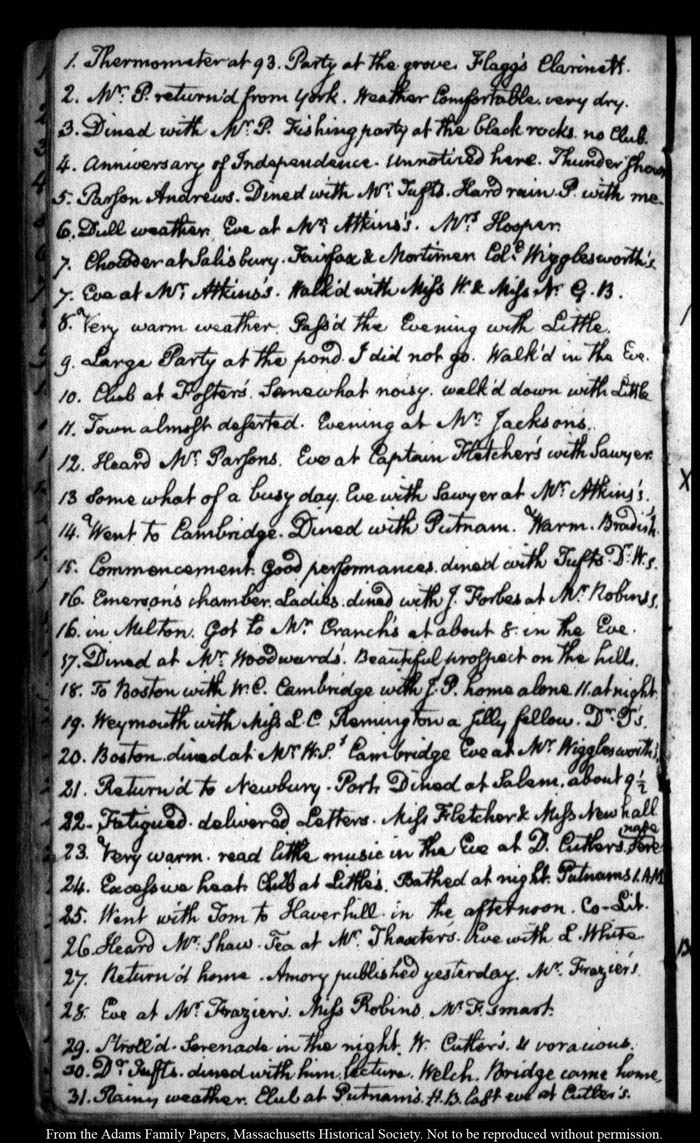 1. Thermometer at 93. Party at the grove. Flagg's Clarinett.
2. Mr. P. return'd from York. Weather Comfortable. very dry.
3. Dined with Mr. P. Fishing party at the black rocks. no Club.
4. Anniversary of Independence. Unnoticed here. Thunder Shower
5. Parson Andrews. Dined with Mr. Tufts. Hard rain P. with me.
6. Dull weather. Eve at Mrs. Atkins's. Mrs. Hooper.
7. Chowder at Salisbury. Fairfax & Mortimer. Wigglesworth's.
7. Eve at Mrs. Atkins's. Walk'd with Miss W. & Miss N. G. B.
8. Very warm weather. Pass'd the Evening with Little.
9. Large Party at the pond. I did not go. Walk'd in the Eve.
10. Club at Foster's. Somewhat noisy. walk'd down with Little
11. Town almost deserted. Evening at Mr. Jackson's.
12. Heard Mr. Parsons. Eve at Captain Fletcher's with Sawyer.
13 Somewhat of a busy day. Eve with Sawyer at Mrs. Atkins's.
14. Went to Cambridge. Dined with Putnam. Warm. Bradish.
15. Commencement. Good performances. dined with Tufts. Dr. W's.
16. Emerson's chamber. Ladies. dined with J. Forbes at Mr. Robins's.
16. in Milton. Got to Mr. Cranch's at about 8. in the Eve.
17. Dined at Mr. Woodward's. Beautiful prospect on the hills.
18. To Boston with W. C. Cambridge with J. P. home alone 11. at night
19. Weymouth with Miss L. C. Remington a silly fellow. Dr. T's.
20. Boston. dined at Mr. W. S's Cambridge Eve at Mr. Wigglesworth's
21. Return'd to Newbury-Port. Dined at Salem. about 9 1/2
22. Fatigued. delivered Letters. Miss Fletcher & Miss Newhall
23. Very warm. read little music in the Eve at D. Cutler's.
24. Excessive heat. Club at Little's. Bathed at night. Putnam's 1. A.M
25. Went with Tom to Haverhill. in the afternoon. Co-Lit.
26. Heard Mr. Shaw. Tea at Mr. Thaxter's. Eve with L. White
27. Return'd home. Amory published yesterday. Mr. Frazier's.
28. Eve at Mr. Frazier's. Miss Robins. Mr. F. smart.
29. Stroll'd. Serenade in the night. W. Cutler's. voracious.
30. Dr. Tufts. dined with him. lecture. Welch. Bridge came home.
31. Rainy weather. Club at Putnam's. H. B. last eve at Cutler's.
From the Adams Family Papers, Massachusetts Historical Society. Not to be reproduced without permission.